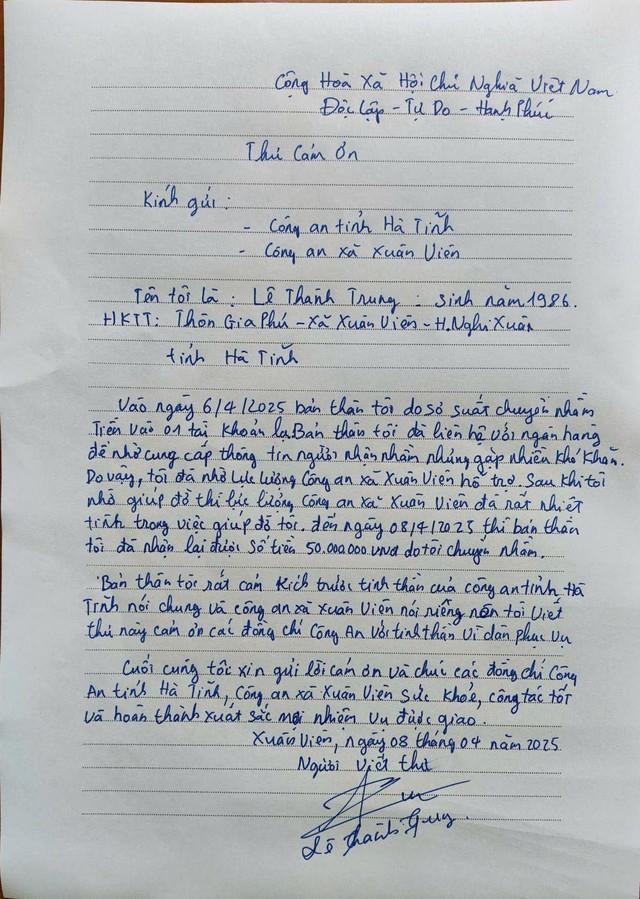 Cộng Hoà Xã Hội Chủ Nghĩa Việt Nam
Độc Lập - Tự Do - Hạnh Phúc
Thư Cảm Ơn
Kính gửi :
- Công an tỉnh Hà Tĩnh
- Công an xã Xuân Viên
Tên tôi là : Lê Thành Trung : sinh năm 1986.
HKTT: Thôn Gia Phú - Xã Xuân Viên - H.Nghi Xuân
tỉnh Hà Tĩnh
Vào ngày 6/4/2025 bản thân tôi do sơ suất chuyển nhầm
Tiền vào 01 tài khoản lạ. Bản thân tôi đã liên hệ với ngân hàng
để nhờ cung cấp thông tin người nhận nhầm nhưng gặp nhiều khó khăn.
Do vậy, tôi đã nhờ Lực lượng Công an xã Xuân Viên hỗ trợ. Sau khi tôi
nhờ giúp đỡ thì lực lượng Công an xã Xuân Viên đã rất nhiệt
tình trong việc giúp đỡ tôi. đến ngày 08/4/2025 thì bản thân
tôi đã nhận lại được số tiền 50.000.000 vnđ do tôi chuyển nhầm.
Bản thân tôi rất cảm kích trước tinh thần của công an tỉnh Hà
Tĩnh nói chung và công an xã Xuân Viên nói riêng nên tôi Viết
thư này cảm ơn các đồng chí Công An với tinh thần Vì dân phục vụ
Cuối cùng tôi xin gửi lời cảm ơn và chúc các đồng chí Công
An tỉnh Hà Tĩnh, Công an xã Xuân Viên Sức khoẻ, công tác tốt
và hoàn thành xuất sắc mọi nhiệm vụ được giao.
Xuân Viên, ngày 08 tháng 04 năm 2025
Người viết thư
Lê Thành Trung.